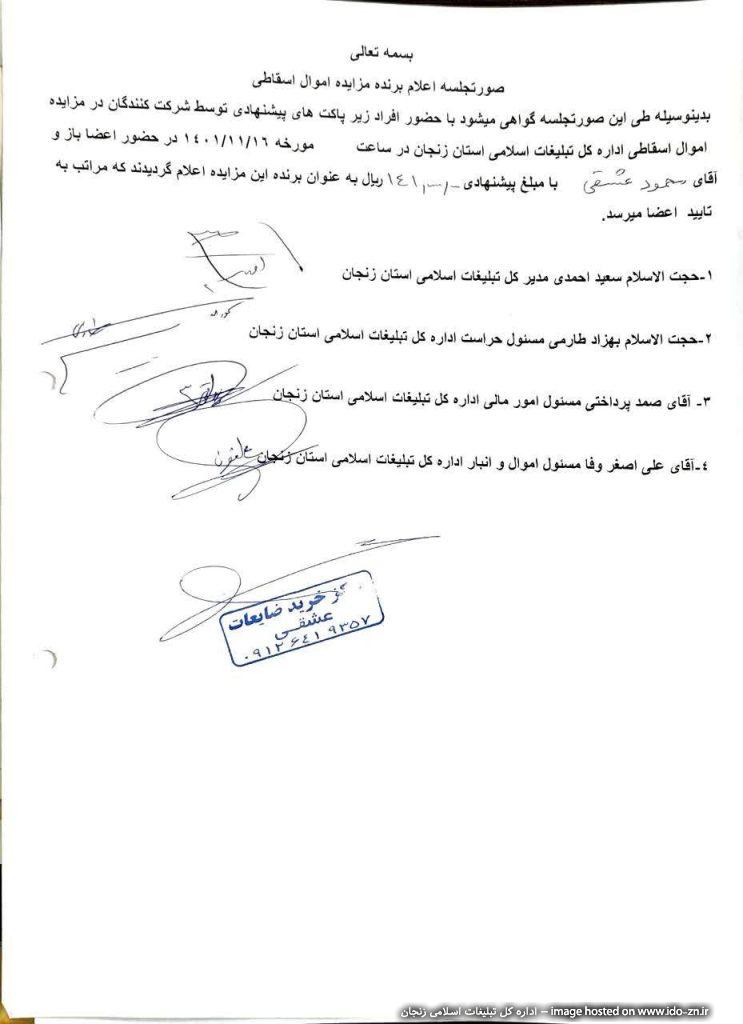 بسمه تعالی
صورتجلسه اعلام برنده مزایده اموال اسقاطی
بدینوسیله طی این صورتجلسه گواهی میشود با حضور افراد زیر پاکت های پیشنهادی توسط شرکت کنندگان در مزایده
اموال اسقاطی اداره کل تبلیغات اسلامی استان زنجان در ساعت مورخه ۱۴۰۱/۱۱/۱۶ در حضور اعضا باز و
آقای محمود عشقی با مبلغ پیشنهادی ریال به عنوان برنده این مزایده اعلام گردیدند که مراتب به
تایید اعضا میرسد.
۱-حجت الاسلام سعید احمدی مدیر کل تبلیغات اسلامی استان زنجان
۲-حجت الاسلام بهزاد طارمی مسئول حراست اداره کل تبلیغات اسلامی استان زنجان
۳- آقای صمد پرداختی مسئول امور مالی اداره کل تبلیغات اسلامی استان زنجان
۴-آقای علی اصغر وفا مسئول اموال و انبار اداره کل تبلیغات اسلامی استان زنجان
خرید ضایعات
عشقی
۰۹۱۲۶۴۱۹۳۵۷
اداره کل تبلیغات اسلامی زنجان – image hosted on www.ido-zn.ir